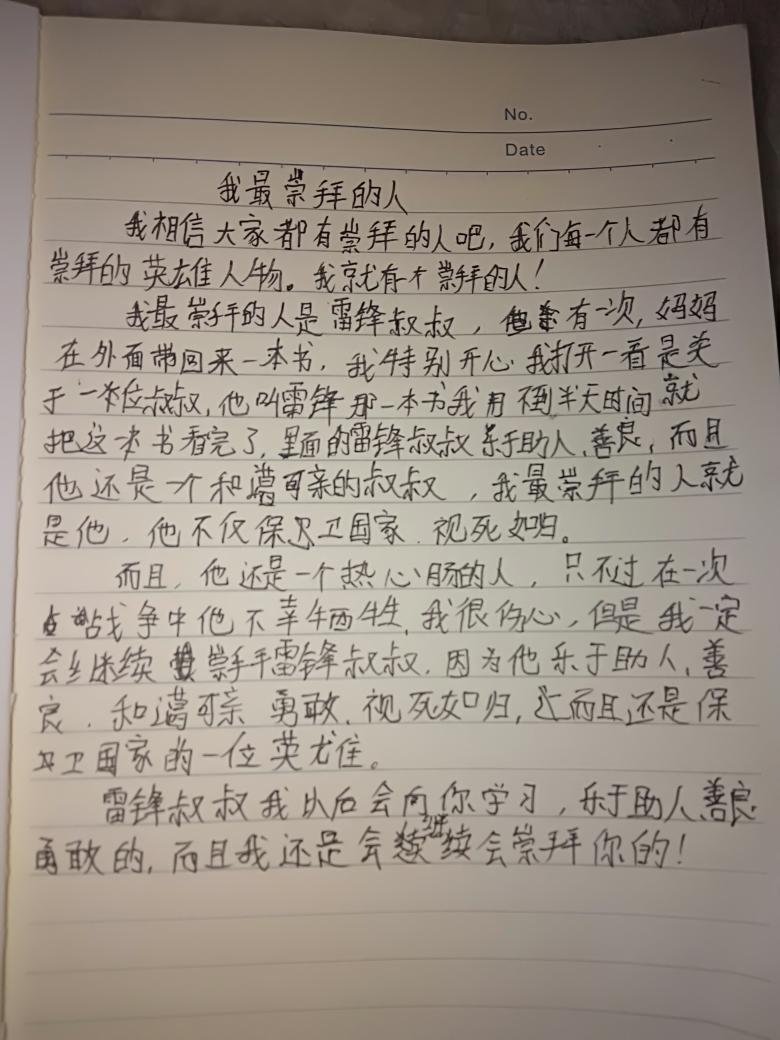 No.
Date
我最崇拜的人
我相信大家都有崇拜的人吧，我们每一个人都有
崇拜的英雄人物。我就有个崇拜的人！
我最崇拜的人是雷锋叔叔，有一次，妈妈
在外面带回来一本书，我特别开心我打开一看是关
于一位叔叔，他叫雷锋那一本书我用不到半天时间就
把这本书看完了，里面的雷锋叔叔乐于助人、善良，而且
他还是一个和蔼可亲的叔叔，我最崇拜的人就
是他，他不仅保卫国家、视死如归。
而且，他还是一个热心肠的人，只不过在一次
战争中他不幸牺牲，我很伤心，但是我一定
会继续崇拜雷锋叔叔，因为他乐于助人、善
良、和蔼可亲、勇敢、视死如归，而且还是保
卫国家的一位英雄。
雷锋叔叔我以后会向你学习，乐于助人、善良、
勇敢的，而且我还是会继续会崇拜你的！